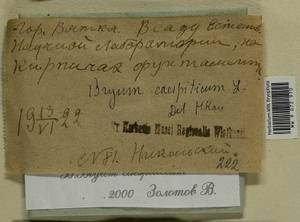 Гор. Вятка. В саду Естеств.
Научной Лаборатории, на
кирпичах фундамента
Bryum caespiticium L.
Det.
19 13/VI 22
Ex Herbario Musei Regionalis Wiatkensis
Никольский.
222
2000 Золотов В.